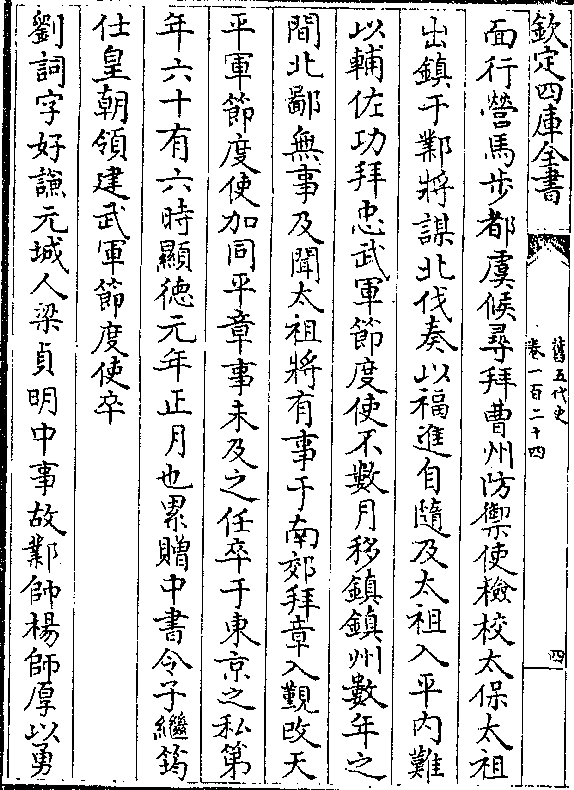 欽定四庫全書
舊五代史
卷一百二十四
四
面行營馬步都虞候尋拜曹州防禦使檢校太保太祖
出鎮于鄴將謀北伐奏以福進自隨及太祖入平內難
以輔佐功拜忠武軍節度使不數月移鎮鎮州數年之
間北鄙無事及聞太祖將有事于南郊拜章入覲改天
平軍節度使加同平章事未及之任卒于東京之私第
年六十有六時顯徳元年正月也累贈中書令子繼筠
仕皇朝領建武軍節度使卒
劉詞字好謙元城人梁貞明中事故鄴帥楊師厚以勇